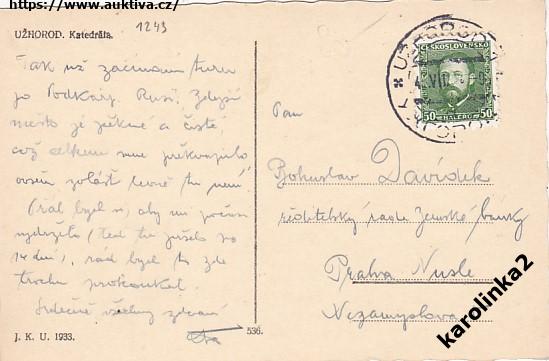 https://www.auktiva.cz/
1243
UŽHOROD. Katedrála.
Tak už začínám turu
po Podkarp. Rusi. Zdejší
město je pěkné a čisté
což celkem mne překvapilo
ovšem zvlášť levné tu není.
Přál bych si, aby mi počasí
vydrželo (teď tu pršelo po
14 dní), rád bych to zde
trochu prokoukal.
Srdečně všechny zdraví
J. K. U. 1933.
536.
ČESKOSLOVENSKO
50 HALÉŘŮ 50
UŽHOROD
Pan
Bohuslav Davídek
ředitelský rada Zemské banky
Praha Nusle
Nezamyslova
karolinka2